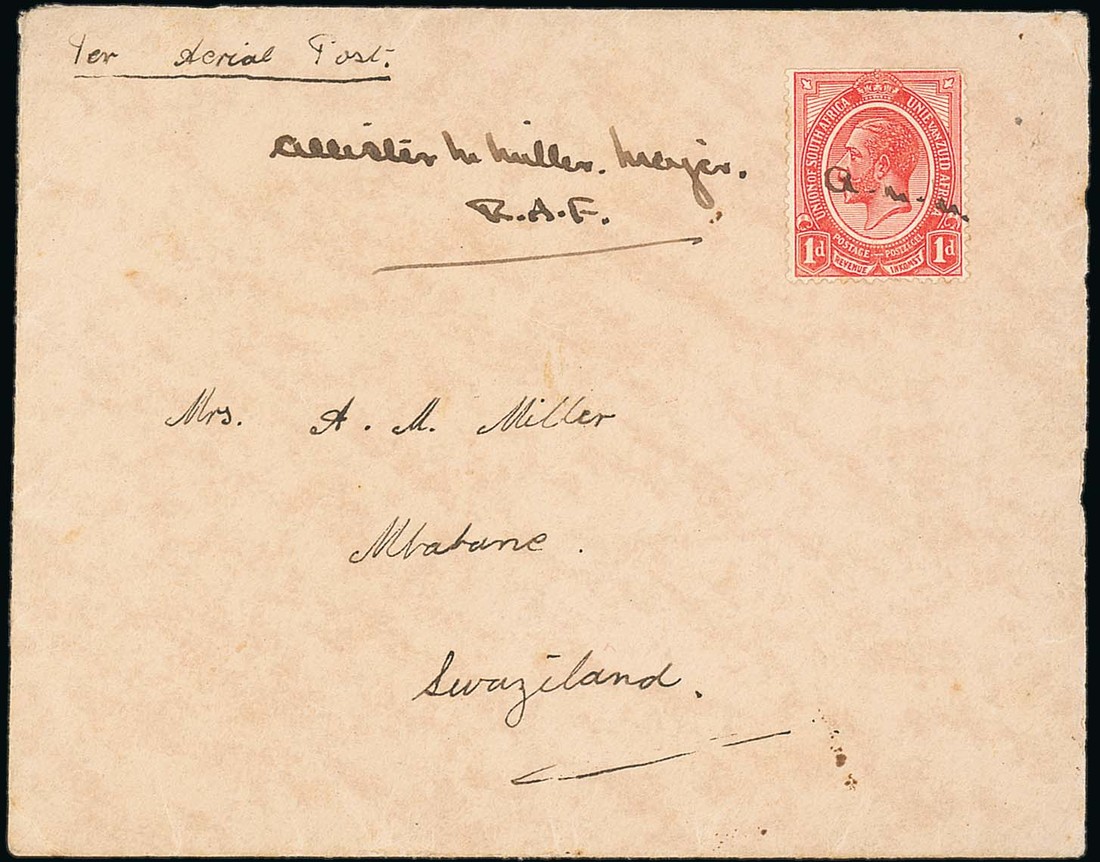 Per Aerial Post.
Allister M Miller. Major.
R.A.F.
UNION OF SOUTH AFRICA
UNIE VAN ZUID AFRIKA
A.M.M.
POSTAGE POSTZEGEL
1d REVENUE INKOMST 1d
Mrs. A. M. Miller
Mbabane.
Swaziland.